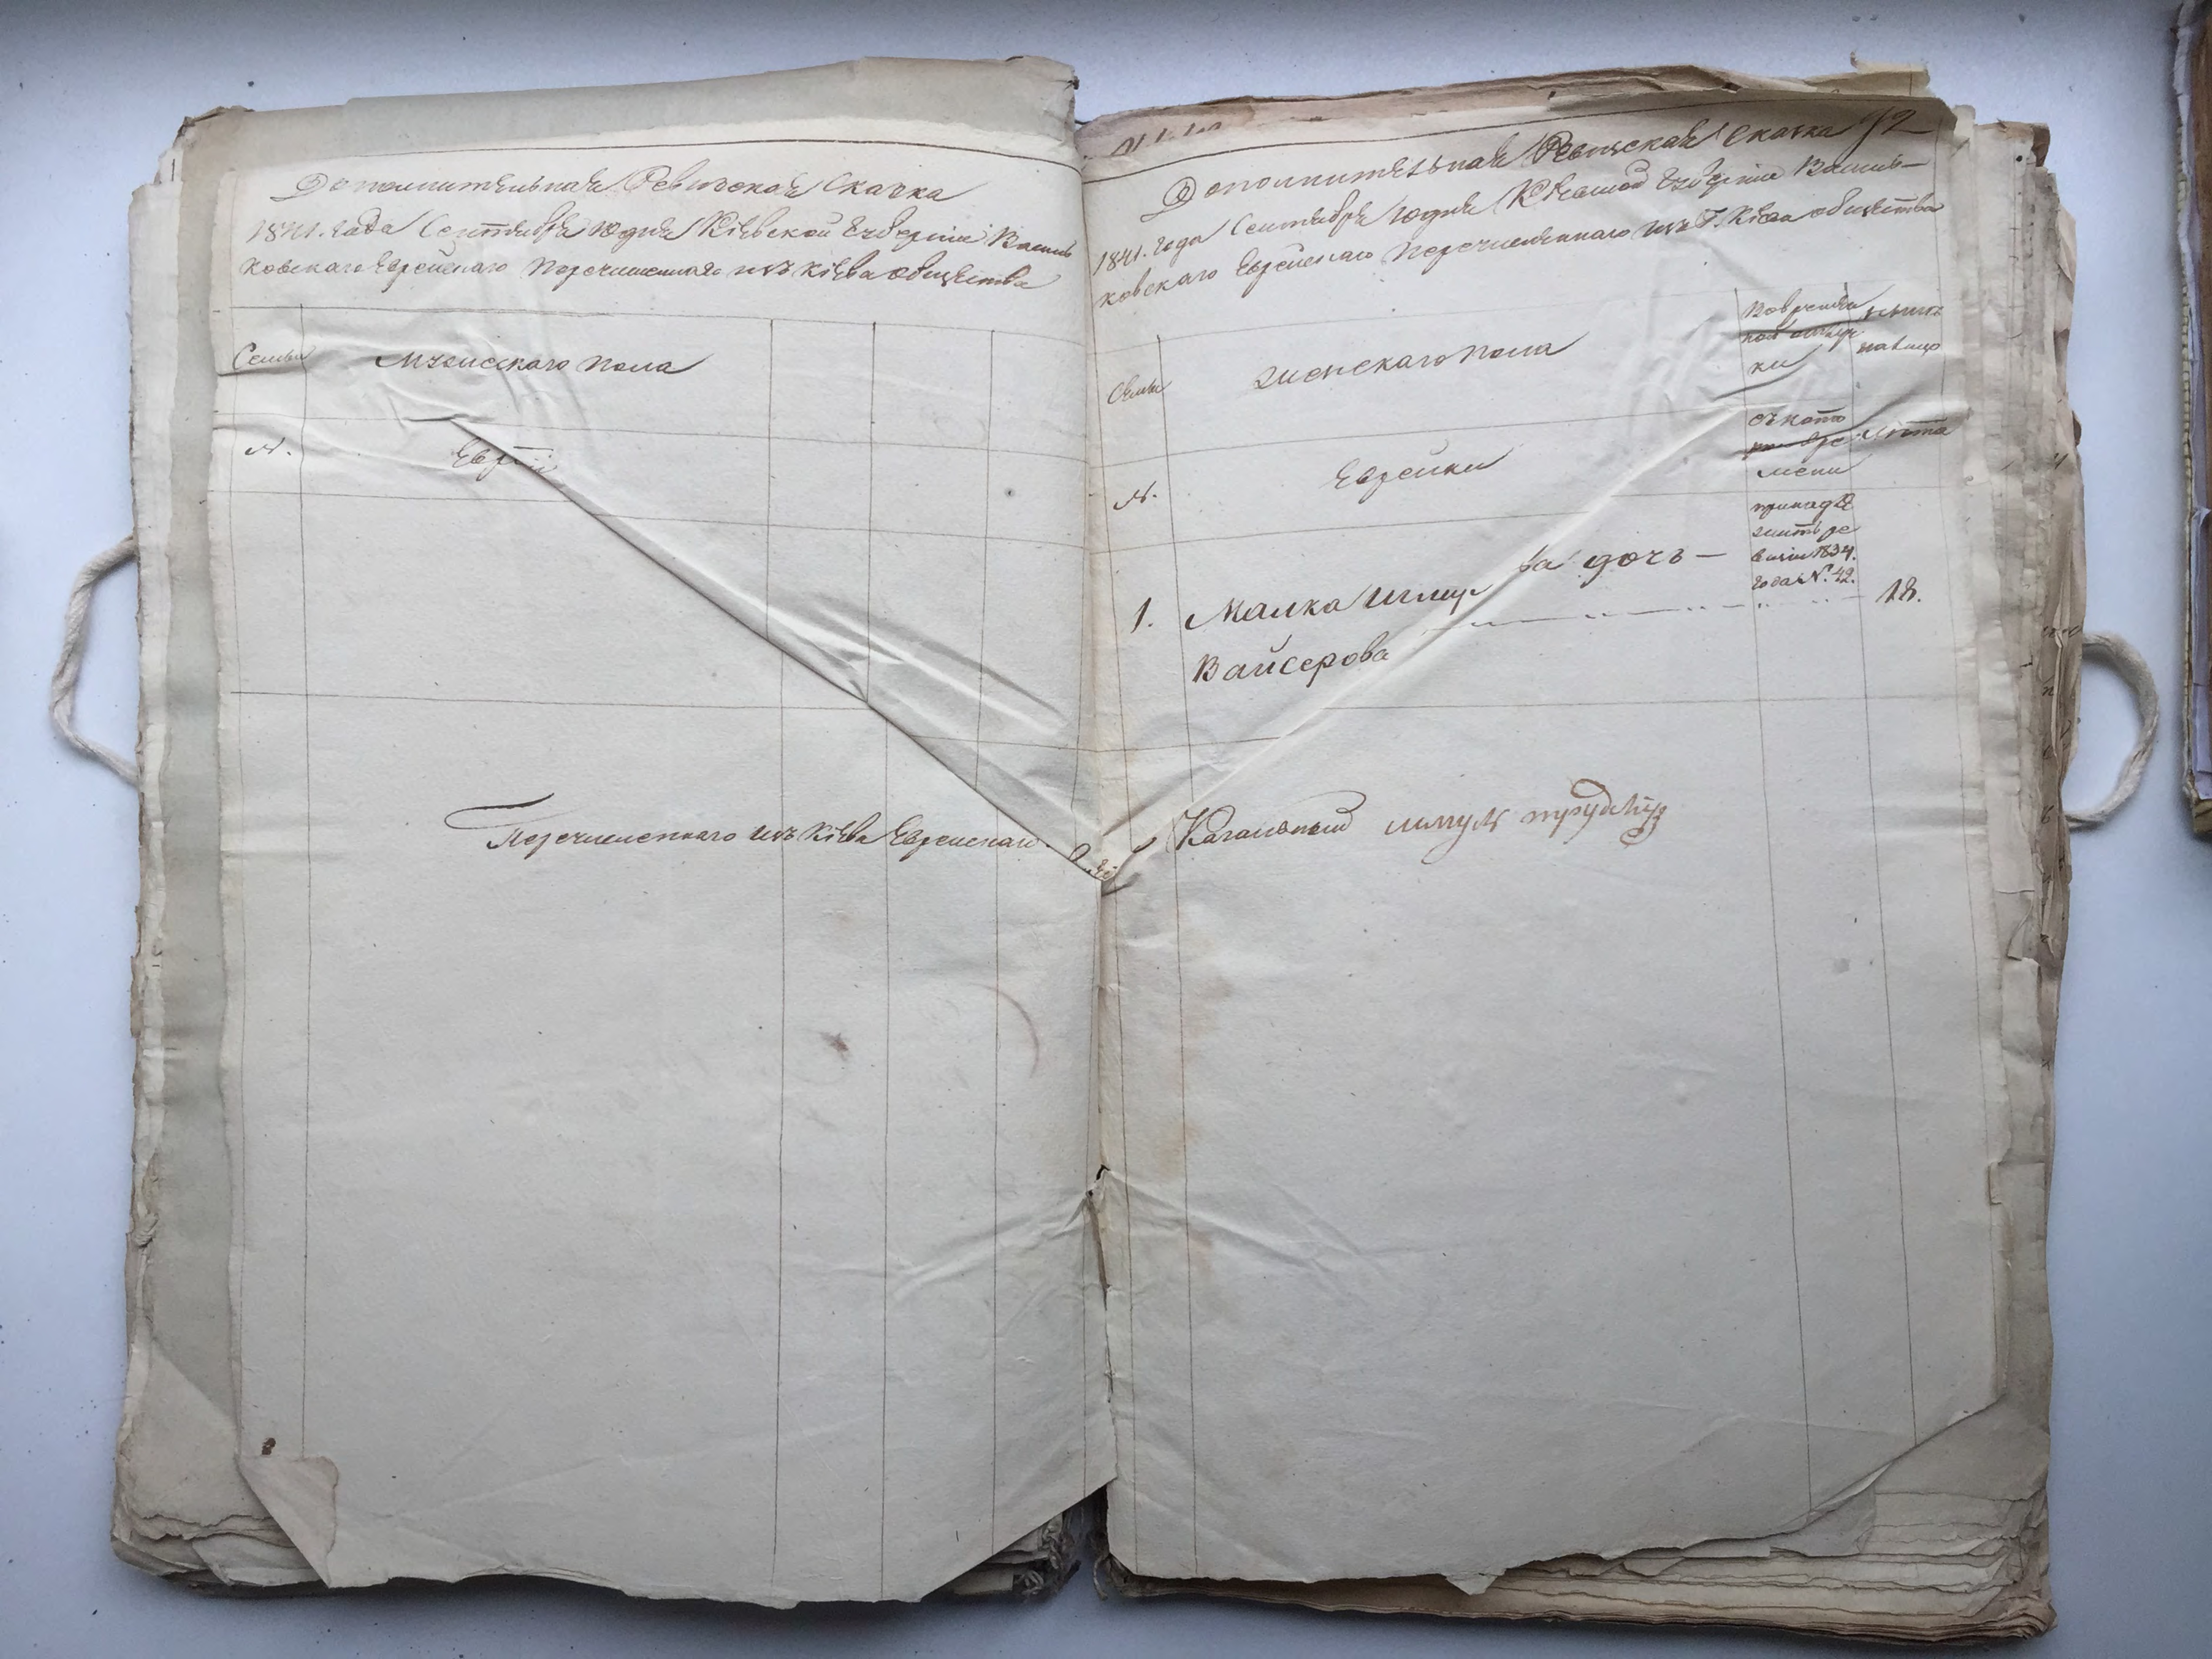 Дополнительная Ревизская Сказка
1841. года Сентября 10 дня Кіевской Губерніи Василь
ковскаго Еврейскаго Перечисленнаго изъ Кіева общества
Семьи
Мужескаго пола
№.
Евреи
Перечисленнаго изъ Кіева Еврейскаго
92
Дополнительная Ревизская Сказка
1841. года Сентября 10 дня Кіевской Губерніи Василь-
ковскаго Еврейскаго Перечисленнаго изъ Г. Кіева общества
Семьи
Женскаго пола
Во временной отлуч
ки
ныне
на лицо
№.
Еврейки
съ кото
ре
мени
Лета
1. Малка дочь —
Вайсерова
принадле
житъ ре
визіи 1834.
года №. 42.
18.
Кагальный